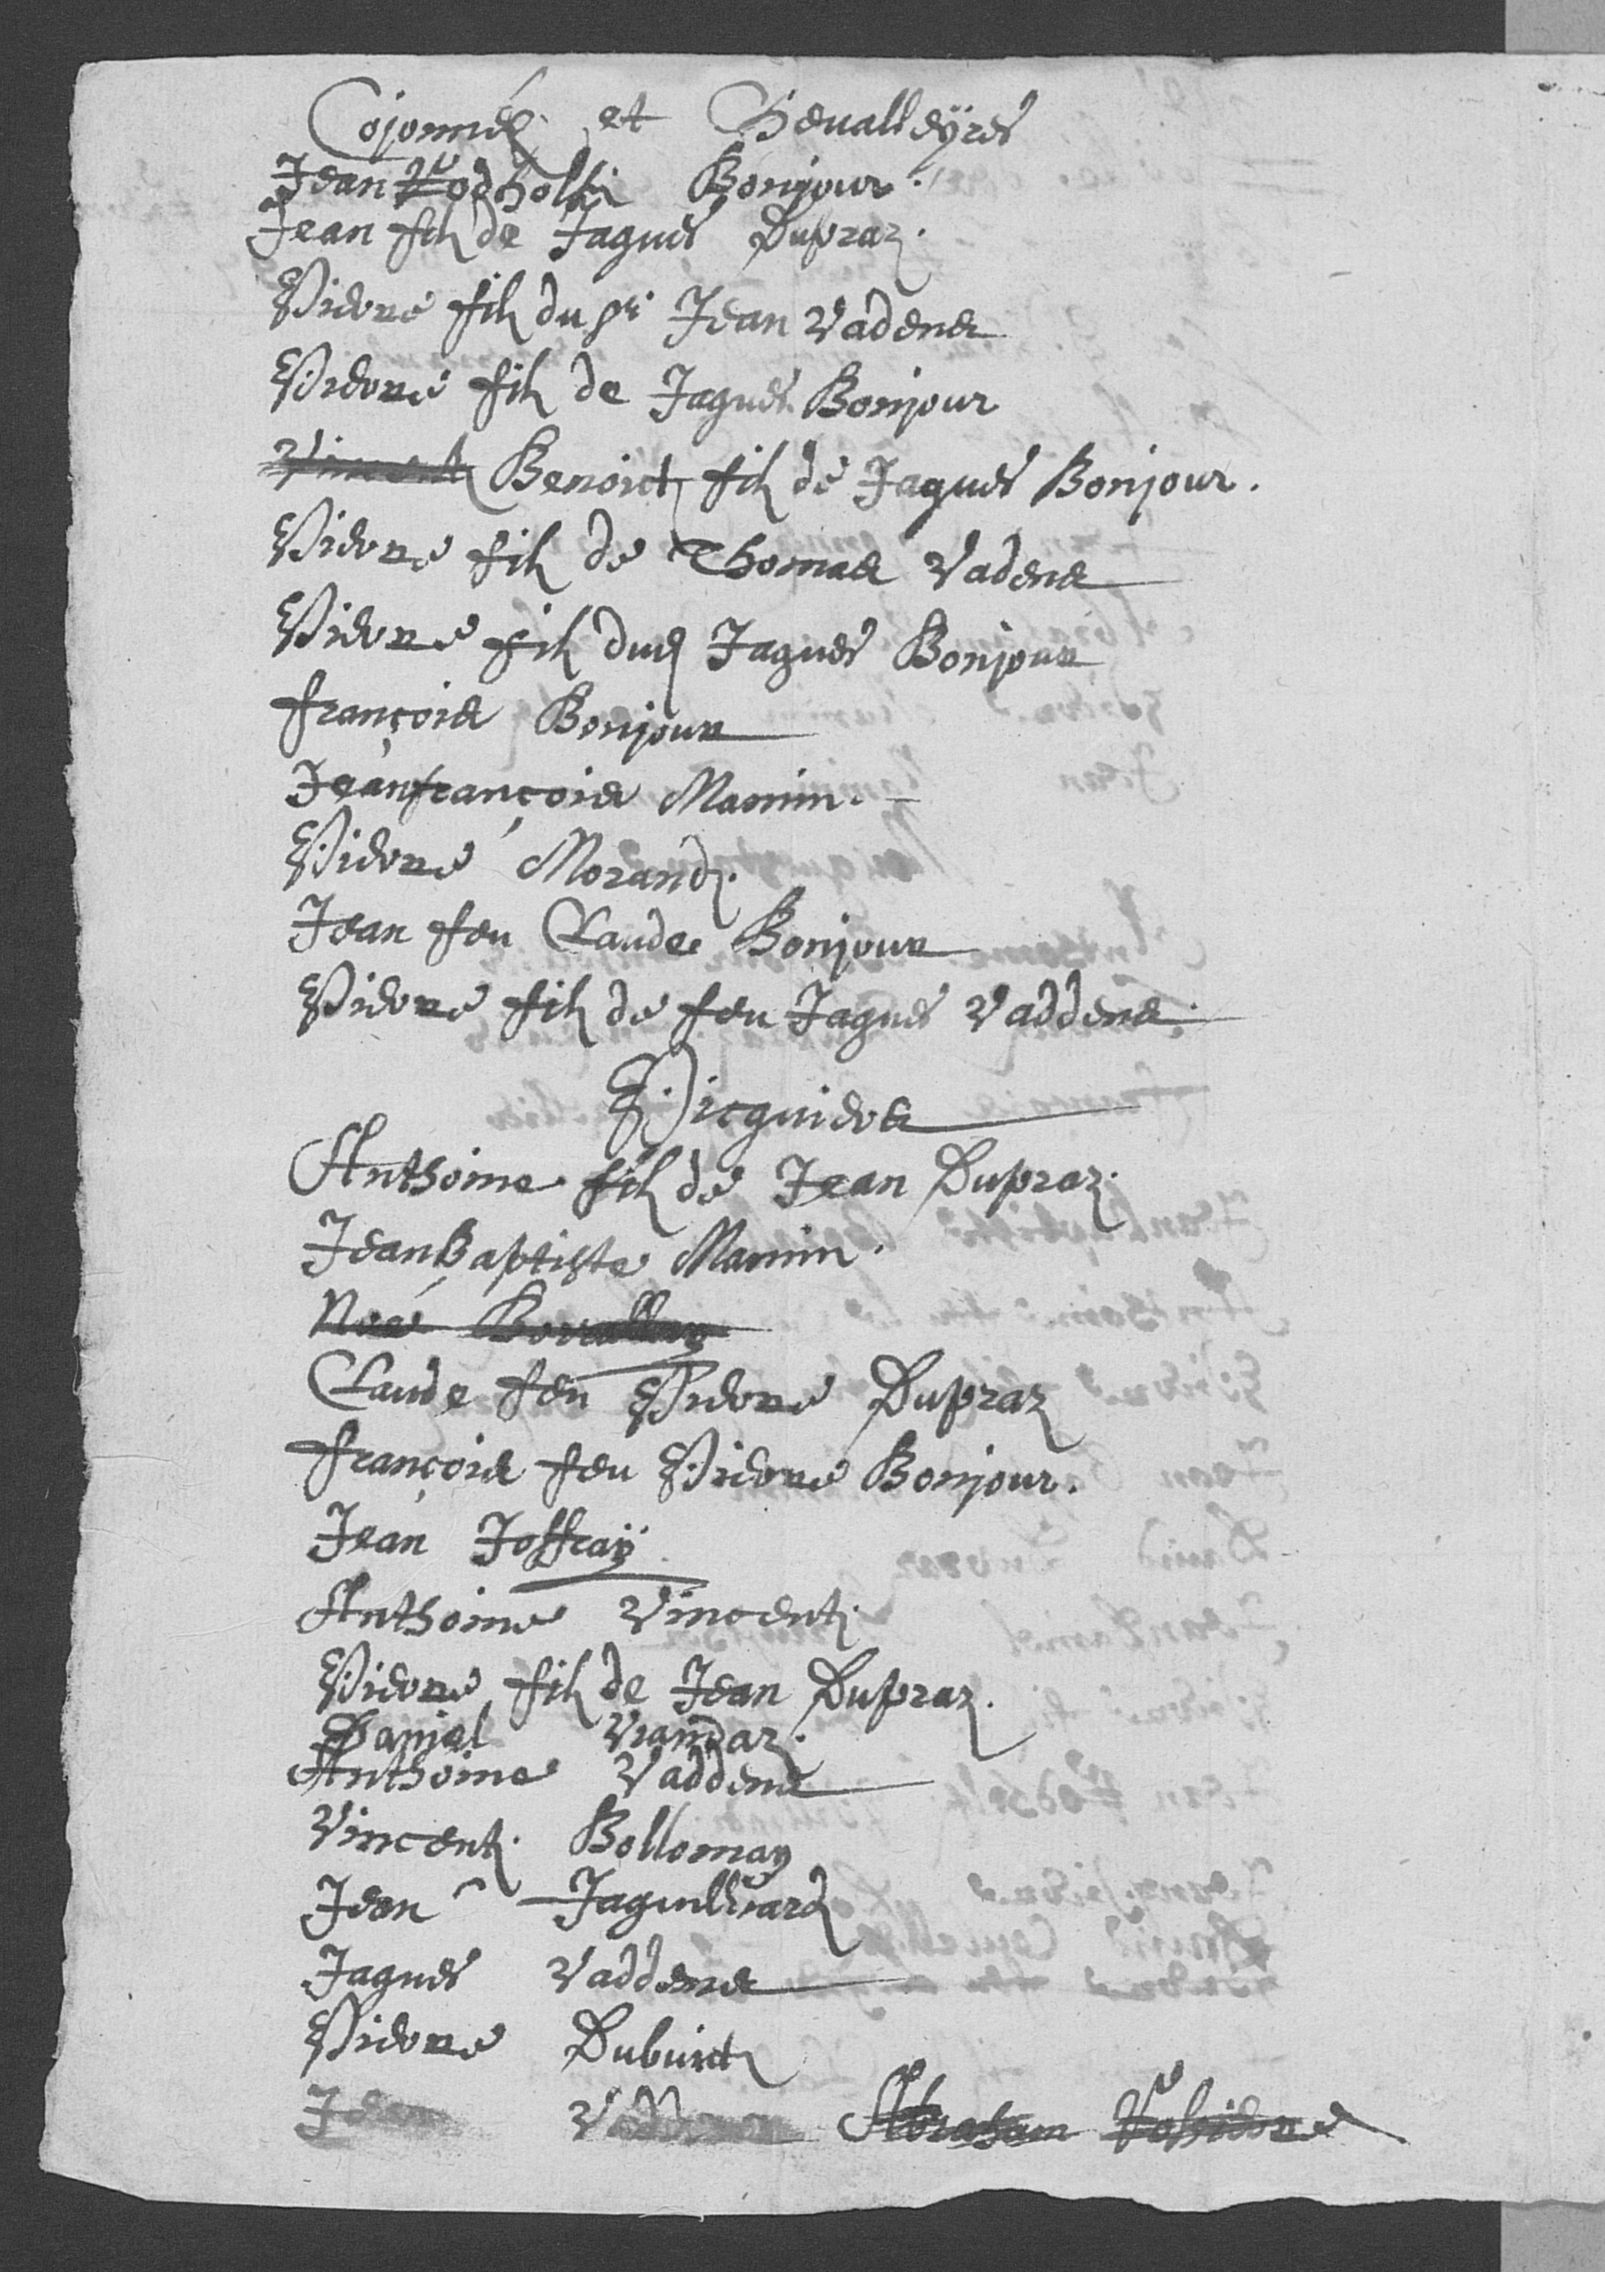 Cojonnex et Chevalleyres
Jean Rodholf Bonjour.
Jean filz de Jaques Dupraz.
Pierre filz du sr Jean Vadens
Pierre filz de Jaques Bonjour
Vincent Benoict filz de Jaques Bonjour.
Pierre filz de Thomas Vadens
Pierre filz dud Jaques Bonjour
françois Bonjour
Jeanfrançois Mamin.
Pierre Morand.
Jean feu Claude Bonjour
Pierre filz de feu Jaques Vaddens.
Picguieres
Anthoine filz de Jean Dupraz.
Jeanbaptiste Mamin.
Noé
Claude feu Pierre Dupraz
françois feu Pierre Bonjour.
Jean Joffray.
Anthoine Vincent.
Pierre filz de Jean Dupraz.
Daniel Viandaz.
Anthoine Vaddens
Vincent. Bollomay
Jean Jaquilliard
Jaques Vaddens
Pierre Dubuict
Jean Vaddens Abraham